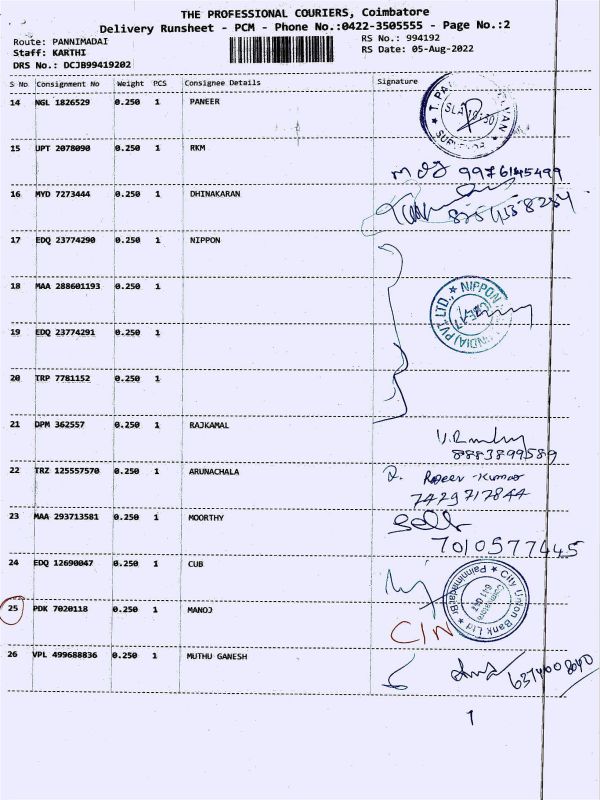 THE PROFESSIONAL COURIERS, Coimbatore
Delivery Runsheet - PCM - Phone No.:0422-3505555 - Page No.:2
Route: PANNIMADAI
RS No.: 994192
Staff: KARTHI
RS Date: 05-Aug-2022
DRS No.: DCJB99419202
S No Consignment No Weight PCS Consignee Details Signature
14 NGL 1826529 0.250 1 PANEER
15 UPT 2078090 0.250 1 RKM
9976145499
16 MYD 7273444 0.250 1 DHINAKARAN
17 EDQ 23774290 0.250 1 NIPPON
18 MAA 288601193 0.250 1
NIPPON (INDIA) PVT LTD.,
19 EDQ 23774291 0.250 1
20 TRP 7781152 0.250 1
21 DPM 362557 0.250 1 RAJKAMAL
8883899589
22 TRZ 125557570 0.250 1 ARUNACHALA
Kumar
7429717844
23 MAA 293713581 0.250 1 MOORTHY
7010577445
24 EDQ 12690047 0.250 1 CUB
City Union Bank Ltd
25 PDK 7020118 0.250 1 MANOJ
CIN
26 VPL 499688836 0.250 1 MUTHU GANESH
1